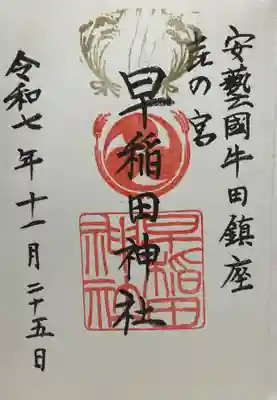 安藝國牛田鎮座
の宮
早稲田神社
早稲田
神社
令和七年十一月二十五日